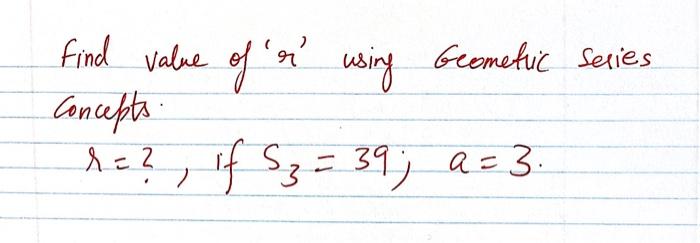 Find value of 'r' using Geometric Series
Concepts.
r = ?, if S₃ = 39; a = 3.